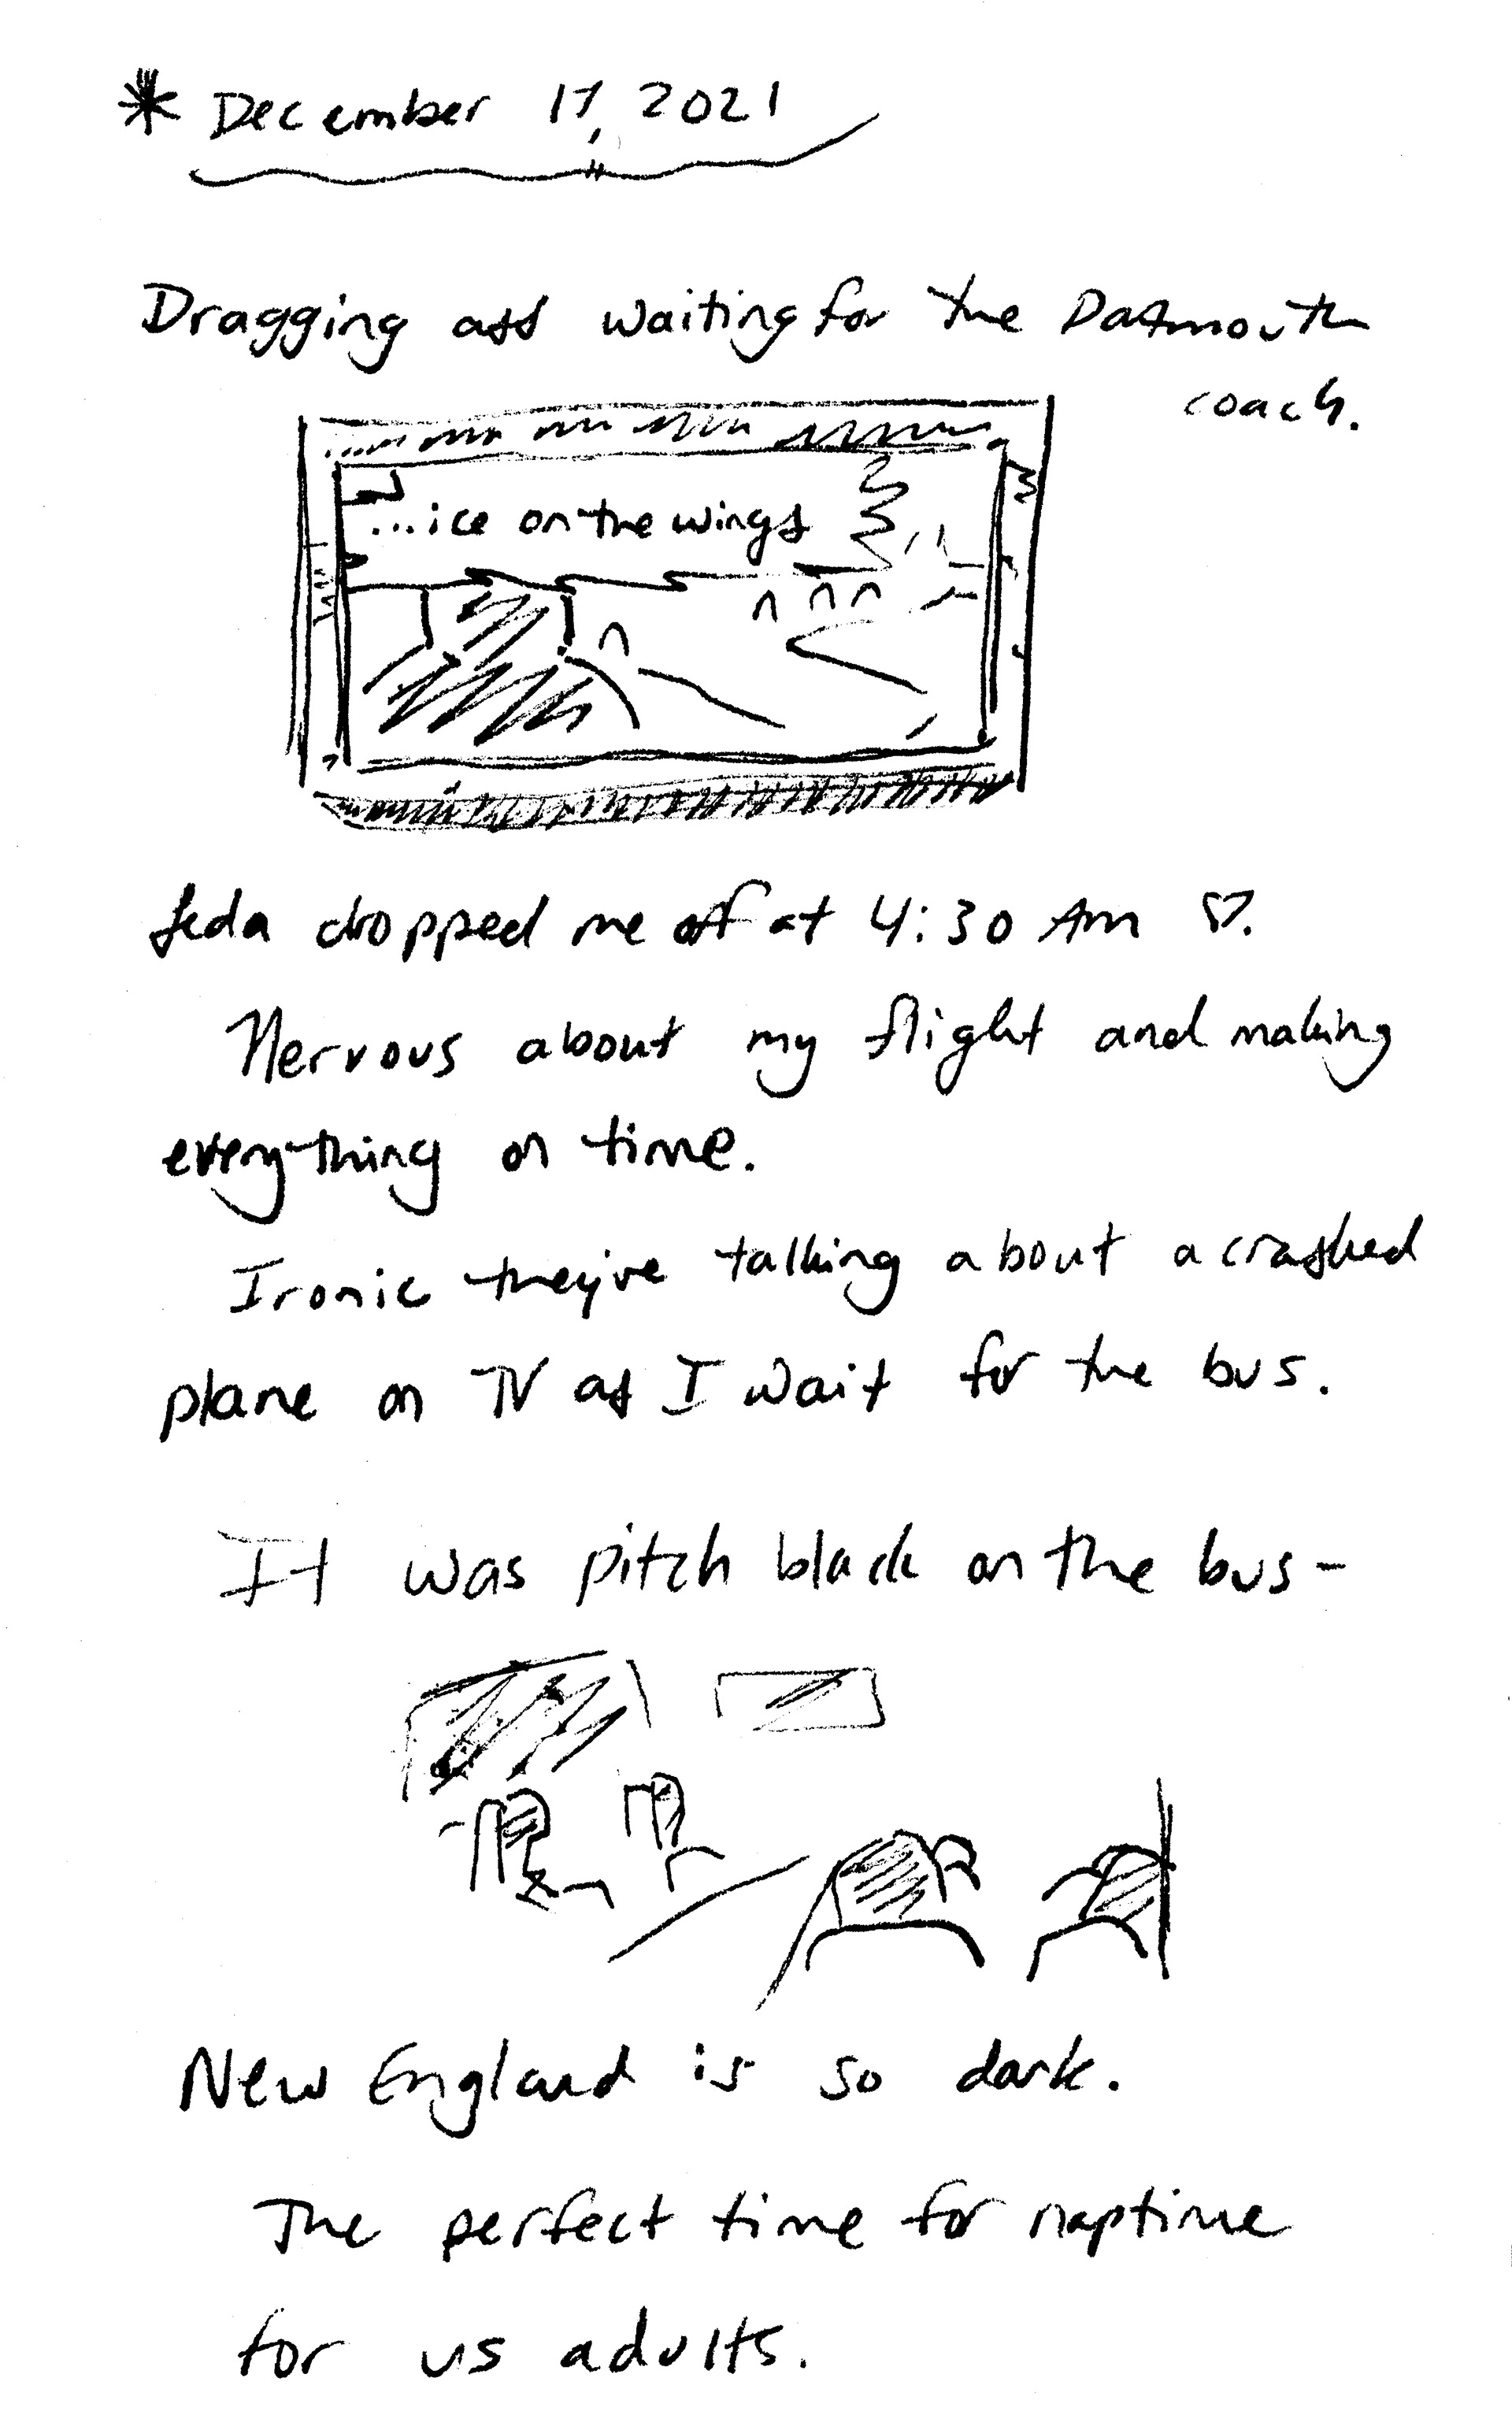 * December 17, 2021
Dragging ass waiting for the Datmouth
coach.
...ice on the wings
Jeda dropped me off at 4:30 AM ♡.
Nervous about my flight and making
everything on time.
Ironic they're talking about a crashed
plane on TV as I wait for the bus.
It was pitch black on the bus-
New England is so dark.
The perfect time for naptime
for us adults.